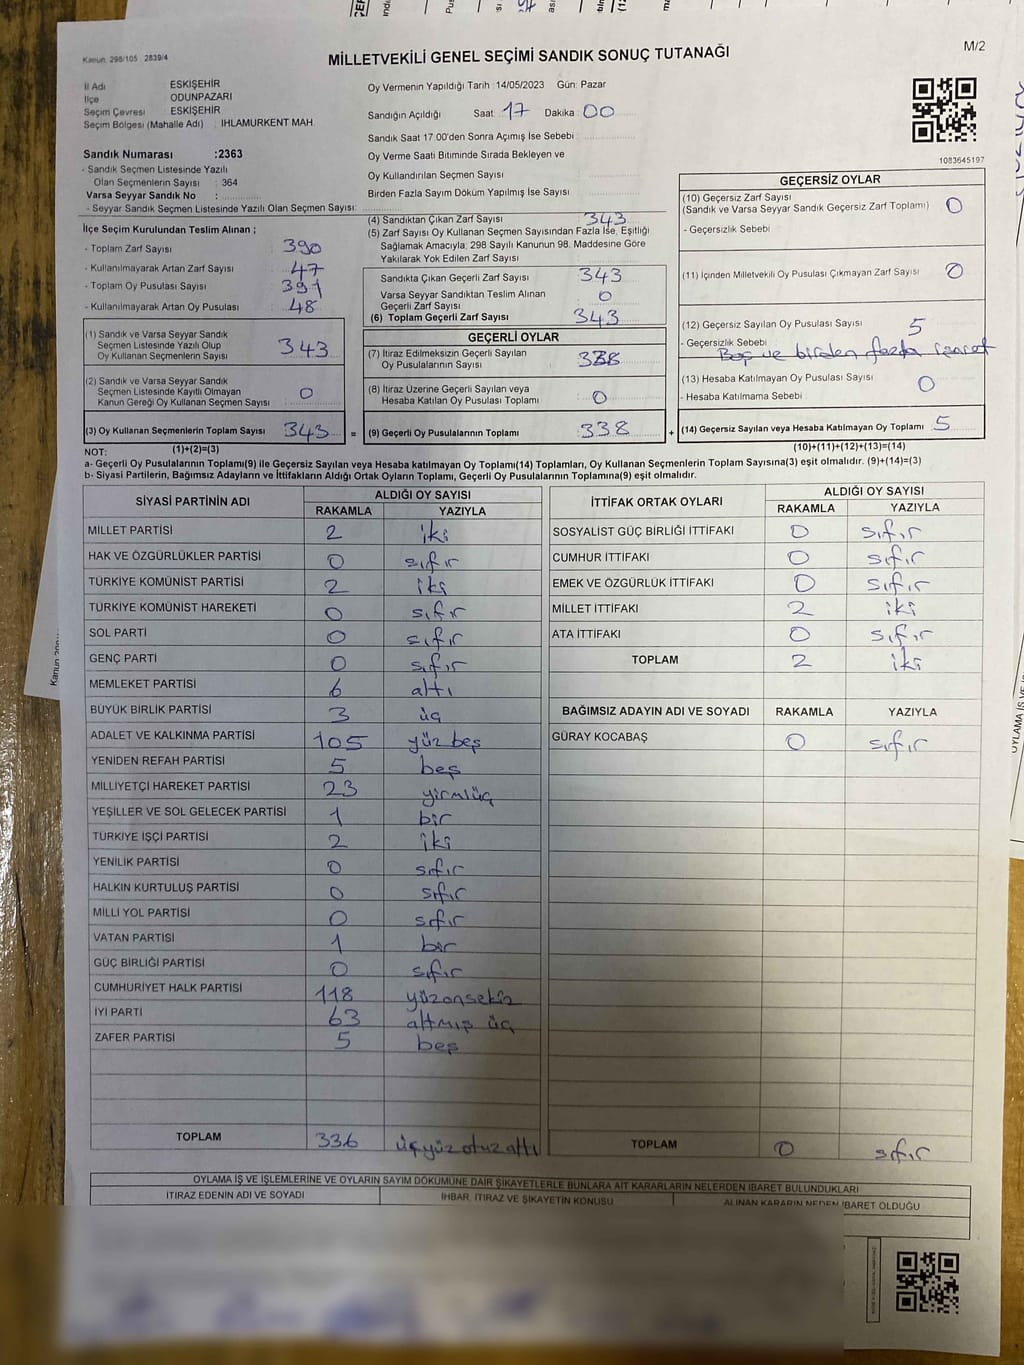 M/2
Kanun: 298/105 2839/4
MİLLETVEKİLİ GENEL SEÇİMİ SANDIK SONUÇ TUTANAĞI
İl Adı ESKİŞEHİR
İlçe ODUNPAZARI
Seçim Çevresi ESKİŞEHİR
Seçim Bölgesi (Mahalle Adı) : IHLAMURKENT MAH.
Sandık Numarası :2363
- Sandık Seçmen Listesinde Yazılı
Olan Seçmenlerin Sayısı : 364
Varsa Seyyar Sandık No :
- Seyyar Sandık Seçmen Listesinde Yazılı Olan Seçmen Sayısı:
Oy Vermenin Yapıldığı Tarih :14/05/2023 Gün: Pazar
Sandığın Açıldığı Saat 17 Dakika 00
Sandık Saat 17:00'den Sonra Açımış İse Sebebi
Oy Verme Saati Bitiminde Sırada Bekleyen ve
Oy Kullandırılan Seçmen Sayısı
Birden Fazla Sayım Döküm Yapılmış İse Sayısı
1083645197
İlçe Seçim Kurulundan Teslim Alınan ;
- Toplam Zarf Sayısı 390
- Kullanılmayarak Artan Zarf Sayısı 47
- Toplam Oy Pusulası Sayısı 391
- Kullanılmayarak Artan Oy Pusulası 48
(1) Sandık ve Varsa Seyyar Sandık
Seçmen Listesinde Yazılı Olup
Oy Kullanan Seçmenlerin Sayısı 343
(2) Sandık ve Varsa Seyyar Sandık
Seçmen Listesinde Kayıtlı Olmayan
Kanun Gereği Oy Kullanan Seçmen Sayısı 0
(3) Oy Kullanan Seçmenlerin Toplam Sayısı 343 =
(1)+(2)=(3)
(4) Sandıktan Çıkan Zarf Sayısı 343
(5) Zarf Sayısı Oy Kullanan Seçmen Sayısından Fazla İse, Eşitliği
Sağlamak Amacıyla; 298 Sayılı Kanunun 98. Maddesine Göre
Yakılarak Yok Edilen Zarf Sayısı
Sandıkta Çıkan Geçerli Zarf Sayısı 343
Varsa Seyyar Sandıktan Teslim Alınan
Geçerli Zarf Sayısı 0
(6) Toplam Geçerli Zarf Sayısı 343
GEÇERLİ OYLAR
(7) İtiraz Edilmeksizin Geçerli Sayılan
Oy Pusulalarının Sayısı 338
(8) İtiraz Üzerine Geçerli Sayılan veya
Hesaba Katılan Oy Pusulası Toplamı 0
(9) Geçerli Oy Pusulalarının Toplamı 338 +
GEÇERSİZ OYLAR
(10) Geçersiz Zarf Sayısı
(Sandık ve Varsa Seyyar Sandık Geçersiz Zarf Toplamı) 0
- Geçersizlik Sebebi
(11) İçinden Milletvekili Oy Pusulası Çıkmayan Zarf Sayısı 0
(12) Geçersiz Sayılan Oy Pusulası Sayısı 5
- Geçersizlik Sebebi Boş ve birden fazla işaret
(13) Hesaba Katılmayan Oy Pusulası Sayısı 0
- Hesaba Katılmama Sebebi
(14) Geçersiz Sayılan veya Hesaba Katılmayan Oy Toplamı 5
(10)+(11)+(12)+(13)=(14)
NOT:
a- Geçerli Oy Pusulalarının Toplamı(9) ile Geçersiz Sayılan veya Hesaba katılmayan Oy Toplamı(14) Toplamları, Oy Kullanan Seçmenlerin Toplam Sayısına(3) eşit olmalıdır. (9)+(14)=(3)
b- Siyasi Partilerin, Bağımsız Adayların ve İttifakların Aldığı Ortak Oyların Toplamı, Geçerli Oy Pusulalarının Toplamına(9) eşit olmalıdır.
SİYASİ PARTİNİN ADI ALDIĞI OY SAYISI
RAKAMLA YAZIYLA
MİLLET PARTİSİ 2 iki
HAK VE ÖZGÜRLÜKLER PARTİSİ 0 sıfır
TÜRKİYE KOMÜNİST PARTİSİ 2 iki
TÜRKİYE KOMÜNİST HAREKETİ 0 sıfır
SOL PARTİ 0 sıfır
GENÇ PARTİ 0 sıfır
MEMLEKET PARTİSİ 6 altı
BÜYÜK BİRLİK PARTİSİ 3 üç
ADALET VE KALKINMA PARTİSİ 105 yüz beş
YENİDEN REFAH PARTİSİ 5 beş
MİLLİYETÇİ HAREKET PARTİSİ 23 yirmiüç
YEŞİLLER VE SOL GELECEK PARTİSİ 1 bir
TÜRKİYE İŞÇİ PARTİSİ 2 iki
YENİLİK PARTİSİ 0 sıfır
HALKIN KURTULUŞ PARTİSİ 0 sıfır
MİLLİ YOL PARTİSİ 0 sıfır
VATAN PARTİSİ 1 bir
GÜÇ BİRLİĞİ PARTİSİ 0 sıfır
CUMHURİYET HALK PARTİSİ 118 yüzonsekiz
İYİ PARTİ 63 altmış üç
ZAFER PARTİSİ 5 beş
TOPLAM 336 üçyüz otuz altı
İTTİFAK ORTAK OYLARI ALDIĞI OY SAYISI
RAKAMLA YAZIYLA
SOSYALİST GÜÇ BİRLİĞİ İTTİFAKI 0 sıfır
CUMHUR İTTİFAKI 0 sıfır
EMEK VE ÖZGÜRLÜK İTTİFAKI 0 sıfır
MİLLET İTTİFAKI 2 iki
ATA İTTİFAKI 0 sıfır
TOPLAM 2 iki
BAĞIMSIZ ADAYIN ADI VE SOYADI RAKAMLA YAZIYLA
GÜRAY KOCABAŞ 0 sıfır
TOPLAM 0 sıfır
OYLAMA İŞ VE İŞLEMLERİNE VE OYLARIN SAYIM DÖKÜMÜNE DAİR ŞİKAYETLERLE BUNLARA AİT KARARLARIN NELERDEN İBARET BULUNDUKLARI
İTİRAZ EDENİN ADI VE SOYADI İHBAR, İTİRAZ VE ŞİKAYETİN KONUSU ALINAN KARARIN NEDEN İBARET OLDUĞU